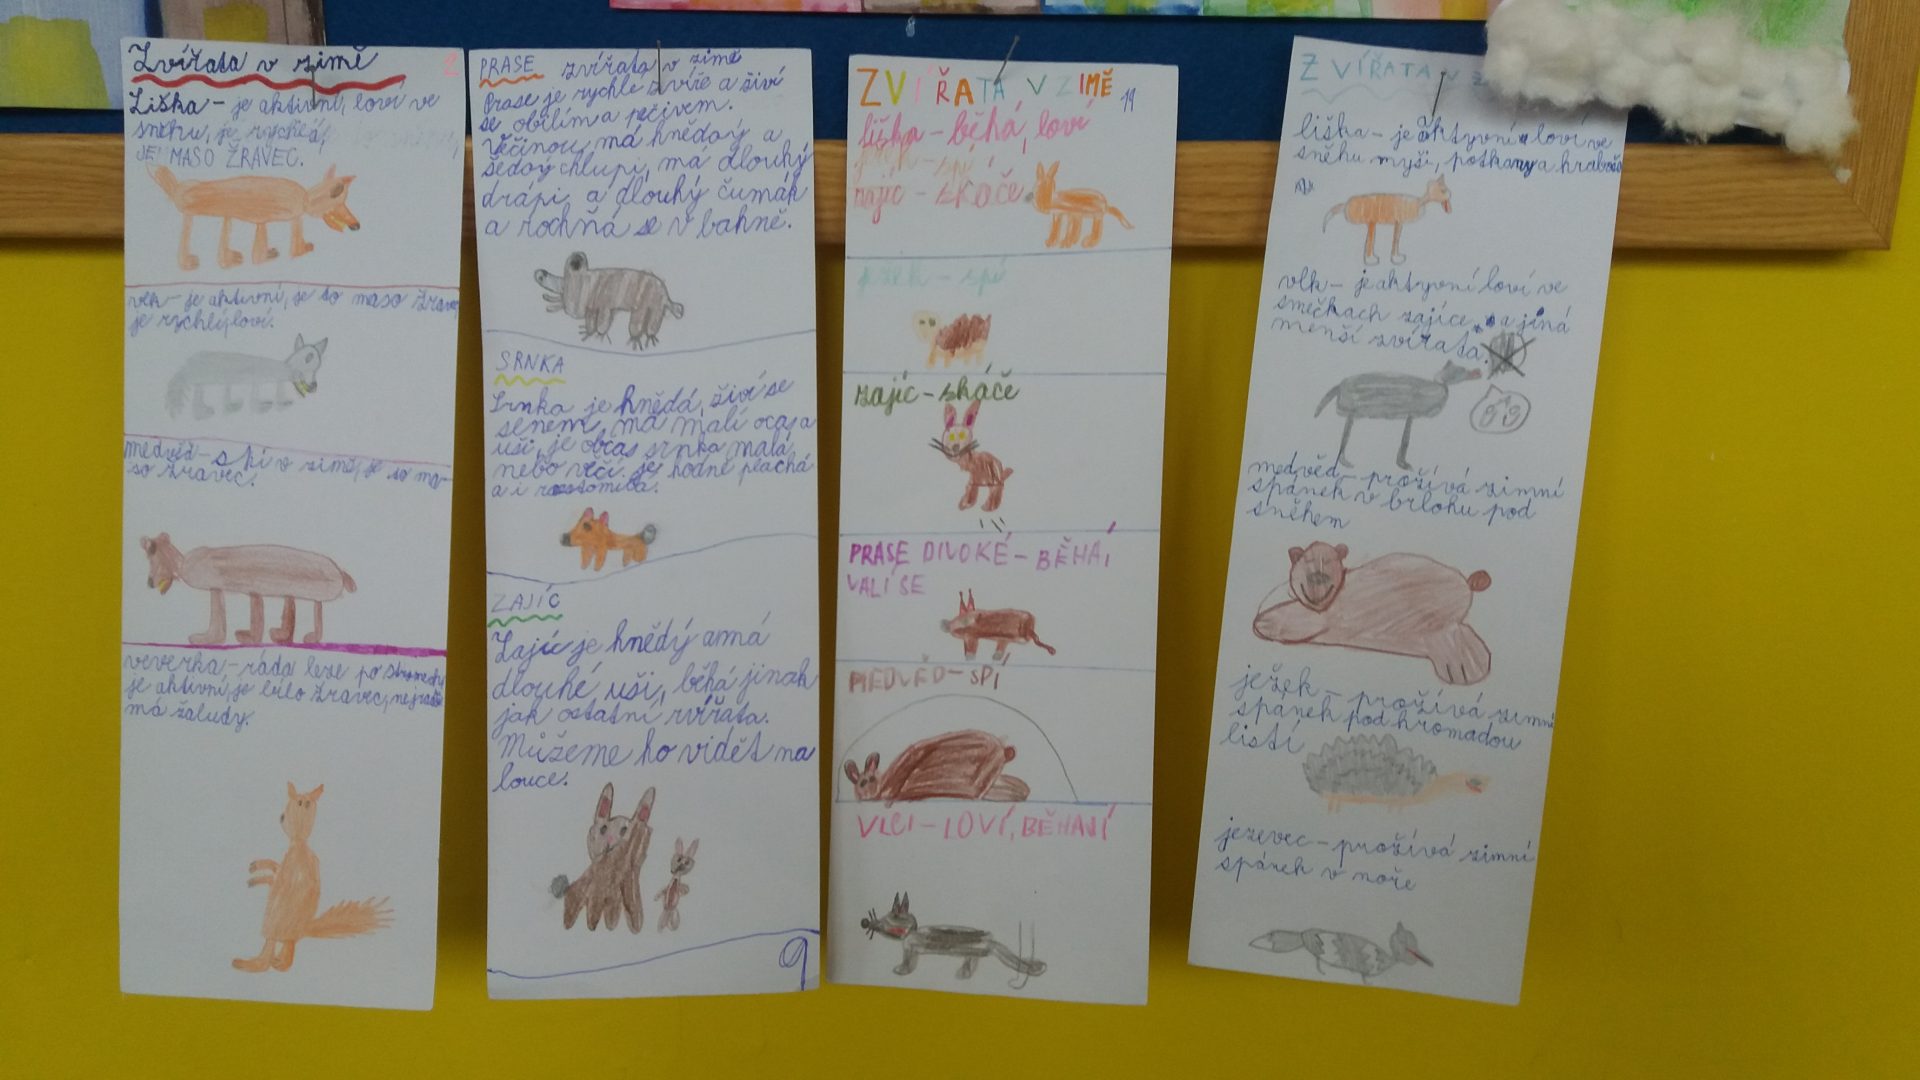 Zvířata v zimě
2
Liška - je aktivní, loví ve
sněhu, je rychlá,
JE MASO ŽRAVEC.
vlk - je aktivní, je to maso žravec
je rychlý loví.
medvěd - spí v zimě, je to ma-
so žravec.
veverka - ráda leze po stromech
je aktivní, je bílo žravec, nejradši
má žaludy.
PRASE zvířata v zimě
Prase je rychlé zvíře a živí
se obilím a pečivem.
většinou má hnědový a
šedový chlupi, má dlouhý
drápi a dlouhý čumák
a rochňá se v bahně.
SRNKA
Srnka je hnědá, živí se
senem, má malí ocas a
uši, je občas srnka malá
nebo věčí je hodně plachá
a i roztomilá.
ZAJÍC
Zajíc je hnědý a má
dlouhé uši, běhá jinak
jak ostatní zvířata.
Můžeme ho vidět na
louce.
9
ZVÍŘATA V ZIMĚ
19
liška - běhá, loví
zajíc - skáče
ježek - spí
zajíc - skáče
PRASE DIVOKÉ - BĚHÁ,
VALÍ SE
MEDVĚD - SPÍ
VLCI - LOVÍ, BĚHAJÍ
ZVÍŘATA V
liška - je aktyvní loví ve
sněhu myši, potkany a hraboše
vlk - je aktyvní loví ve
smečkach zajíce a jiná
menší zvířata.
medvěd - prožívá zimní
spánek v brlohu pod
sněhem
ježek - prožívá zimní
spánek pod hromadou
listí
jezevec - prožívá zimní
spánek v noře